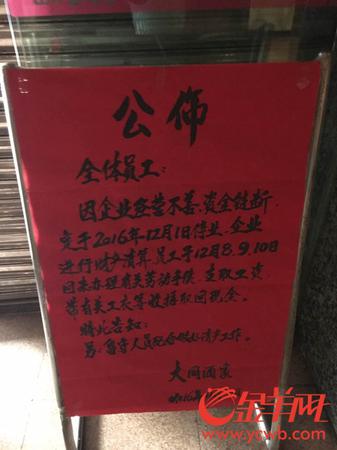 公佈
全体员工：
因企业经营不善、资金链断
定于2016年12月1日停业、企业
进行财产清算、员工于12月8.9.10日
回来办理有关劳动手续、支取工资
带有关工衣等收据取回现金。
特此告知：
另：留守人员配合做好清产工作。
大同酒家
2016年
金羊网
www.ycwb.com